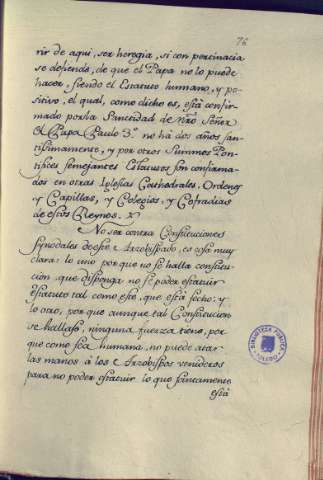 76
rir de aqui, ser heregia, si con pertinacia
se defiende, de que el Papa no lo puede
hacer, siendo el Estatuto humano, y po-
sitivo, el qual, como dicho es, está confir-
mado por la Santidad de nŕo Señor
el Papa Paulo 3º no há dos años san-
tisimamente, y por otros Summos Pon-
tifices semejantes Estatutos son confirma-
dos en otras Iglesias Cathedrales, Ordenes
y Capillas, y Colegios, y Cofradias
de estos Reynos.
No ser contra Constituciones
synodales de este Arzobispado, es cosa muy
clara: lo uno por que no se halla constitu-
cion, que disponga no se poder estatuir
estatuto tal como este, que está fecho: y
lo otro, por que aunque tal Constitucion
se hallase, ninguna fuerza tiene, por
que como sea humana, no puede atar
las manos á los Arzobispos venideros
para no poder estatuir lo que santamente
está
BIBLIOTECA PUBLICA
TOLEDO